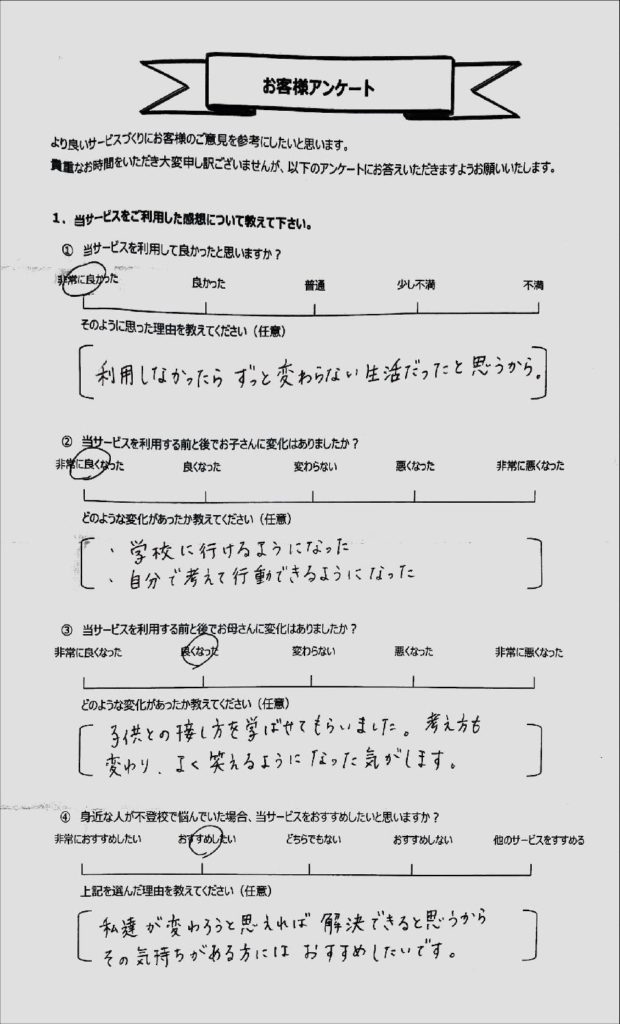 お客様アンケート
より良いサービスづくりにお客様のご意見を参考にしたいと思います。
貴重なお時間をいただき大変申し訳ございませんが、以下のアンケートにお答えいただきますようお願いいたします。
1．当サービスをご利用した感想について教えて下さい。
① 当サービスを利用して良かったと思いますか？
非常に良かった 良かった 普通 少し不満 不満
そのように思った理由を教えてください（任意）
利用しなかったら ずっと変わらない生活だったと思うから。
② 当サービスを利用する前と後でお子さんに変化はありましたか？
非常に良くなった 良くなった 変わらない 悪くなった 非常に悪くなった
どのような変化があったか教えてください（任意）
・学校に行けるようになった
・自分で考えて行動できるようになった
③ 当サービスを利用する前と後でお母さんに変化はありましたか？
非常に良くなった 良くなった 変わらない 悪くなった 非常に悪くなった
どのような変化があったか教えてください（任意）
子供との接し方を学ばせてもらいました。考え方も
変わり、よく笑えるようになった気がします。
④ 身近な人が不登校で悩んでいた場合、当サービスをおすすめしたいと思いますか？
非常におすすめしたい おすすめしたい どちらでもない おすすめしない 他のサービスをすすめる
上記を選んだ理由を教えてください（任意）
私達が変わろうと思えれば 解決できると思うから
その気持ちがある方には おすすめしたいです。